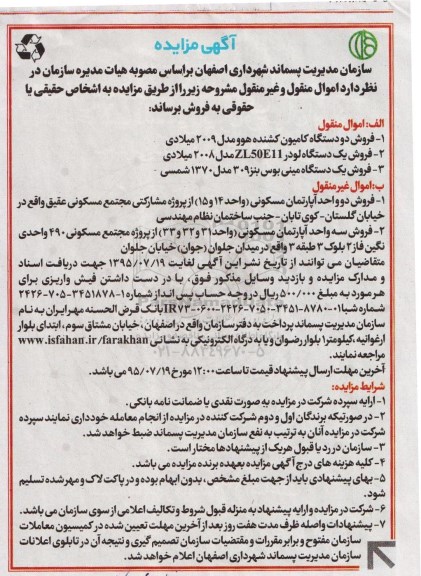 آگهی مزایده
سازمان مدیریت پسماند شهرداری اصفهان براساس مصوبه هیات مدیره سازمان در
نظر دارد اموال منقول و غیر منقول مشروحه زیر را از طریق مزایده به اشخاص حقیقی یا
حقوقی به فروش برساند:
الف: اموال منقول
۱- فروش دو دستگاه کامیون کشنده هوو مدل ۲۰۰۹ میلادی
۲- فروش یک دستگاه لودر ZL50E11 مدل ۲۰۰۸ میلادی
۳- فروش یک دستگاه مینی بوس بنز ۳۰۹ مدل ۱۳۷۰ شمسی
ب: اموال غیر منقول
۱- فروش دو واحد آپارتمان مسکونی (واحد ۱۴ و ۱۵) از پروژه مشارکتی مجتمع مسکونی عقیق واقع در
خیابان گلستان - کوی تابان - جنب ساختمان نظام مهندسی
۲- فروش سه واحد آپارتمان مسکونی (واحد ۳۱ و ۳۲ و ۳۳) از پروژه مجتمع مسکونی ۴۹۰ واحدی
نگین فاز ۲ بلوک ۳ طبقه ۳ واقع در میدان جلوان (جوان) خیابان جلوان
متقاضیان می توانند از تاریخ نشر این آگهی لغایت ۱۳۹۵/۰۷/۱۹ جهت دریافت اسناد
و مدارک مزایده و بازدید وسایل مذکور فوق، با در دست داشتن فیش واریزی برای
هر مورد به مبلغ ۵۰۰/۰۰۰ ریال در وجه حساب پس انداز شماره ۱-۳۴۵۱۸۷۸-۷۰۵-۲۴۲۶
شماره شبا
بانک قرض الحسنه مهر ایران به نام
سازمان مدیریت پسماند پرداخت به دفتر سازمان واقع در اصفهان، خیابان مشتاق سوم، ابتدای بلوار
ارغوانیه، کیلومتر ۱ بلوار رضوان و یا به درگاه الکترونیکی به نشانی www.isfahan.ir/farakhan
مراجعه نمایند.
آخرین مهلت ارسال پیشنهاد قیمت تا ساعت ۱۲:۰۰ مورخ ۹۵/۰۷/۱۹ می باشد.
شرایط مزایده:
۱- ارایه سپرده شرکت در مزایده به صورت نقدی یا ضمانت نامه بانکی.
۲- در صورتیکه برندگان اول و دوم شرکت کننده در مزایده از انجام معامله خودداری نمایند سپرده
شرکت در مزایده آنان به ترتیب به نفع سازمان مدیریت پسماند ضبط خواهد شد.
۳- سازمان در رد یا قبول هریک از پیشنهادها مختار است.
۴- کلیه هزینه های درج آگهی مزایده بعهده برنده مزایده می باشد.
۵- بهای پیشنهادی باید از جهت مبلغ مشخص، بدون ابهام بوده و در پاکت لاک و مهر شده تسلیم
شود.
۶- شرکت در مزایده و ارایه پیشنهاد به منزله قبول شروط و تکالیف اعلامی از سوی سازمان می باشد.
۷- پیشنهادات واصله ظرف مدت هفت روز بعد از آخرین مهلت تعیین شده در کمیسیون معاملات
سازمان مفتوح و برابر مقررات و مقتضیات سازمان تصمیم گیری و نتیجه آن در تابلوی اعلانات
سازمان مدیریت پسماند شهرداری اصفهان اعلام خواهد شد.